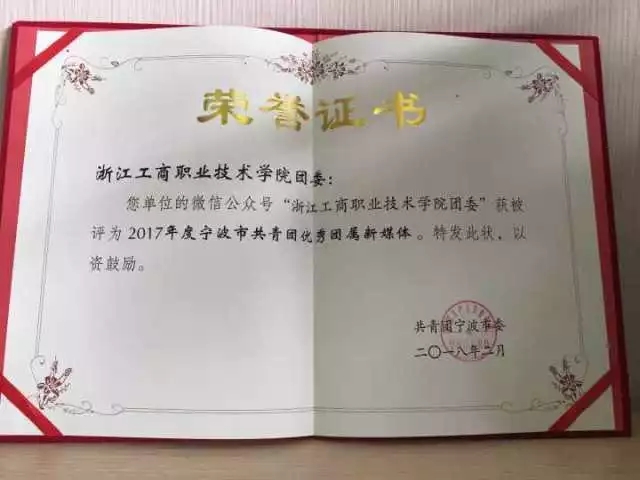 荣誉证书
浙江工商职业技术学院团委:
您单位的微信公众号“浙江工商职业技术学院团委”获被
评为2017年度宁波市共青团优秀团属新媒体。特发此状,以
资鼓励。
共青团宁波市委
二〇一八年二月